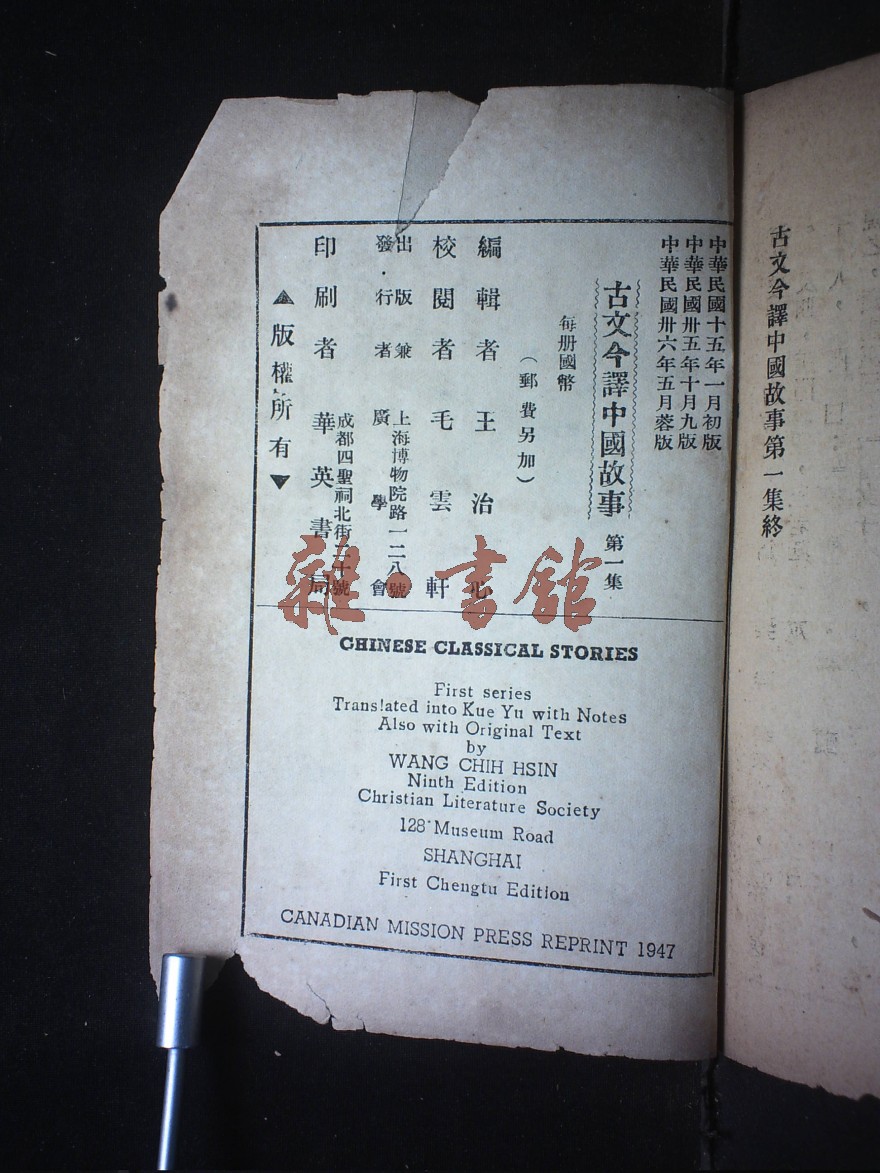 古文今譯中國故事第一集終
中華民國十五年一月初版
中華民國卅五年十月九版
中華民國卅六年五月蓉版
古文今譯中國故事 第一集
每册國幣
（郵費另加）
編輯者 王治心
校閱者 毛雲軒
出版兼發行者 上海博物院路一二八號 廣學會
印刷者 成都四聖祠北街二十號 華英書局
▲版權所有▼
雜·書館
CHINESE CLASSICAL STORIES
First series
Translated into Kue Yu with Notes
Also with Original Text
by
WANG CHIH HSIN
Ninth Edition
Christian Literature Society
128 Museum Road
SHANGHAI
First Chengtu Edition
CANADIAN MISSION PRESS REPRINT 1947